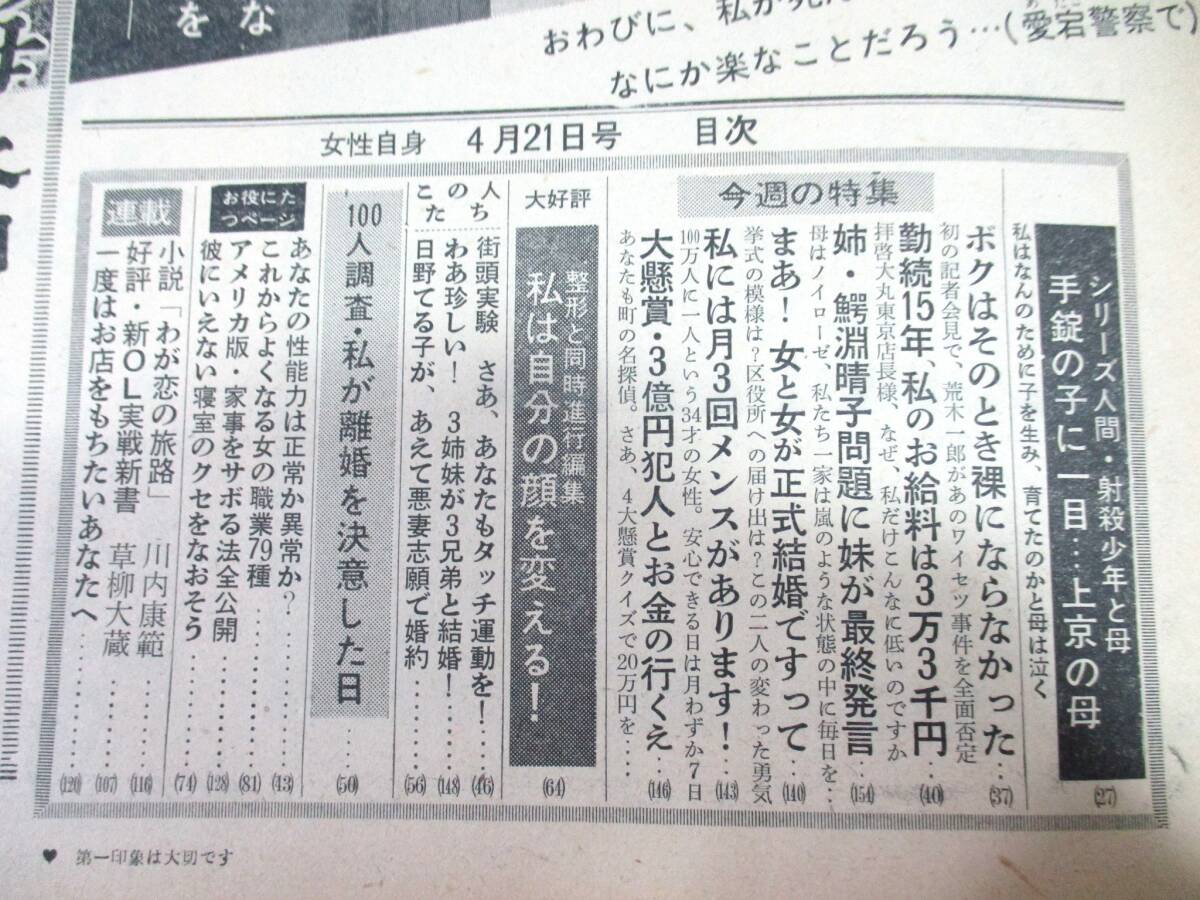 な
を
おわびに、私が死
なにか楽なことだろう…(愛宕警察で)
あたご
女性自身 4月21日号 目次
シリーズ人間・射殺少年と母
手錠の子に一目…上京の母
私はなんのために子を生み、育てたのかと母は泣く
(27)
今週の特集
ボクはそのとき裸にならなかった……(37)
初の記者会見で、荒木一郎があのワイセツ事件を全面否定
勤続15年、私のお給料は3万3千円……(40)
拝啓大丸東京店長様、なぜ、私だけこんなに低いのですか
姉・鰐淵晴子問題に妹が最終発言……(154)
母はノイローゼ、私たち一家は嵐のような状態の中に毎日を…
まあ!女と女が正式結婚ですって……(140)
挙式の模様は?区役所への届け出は?この二人の変わった勇気
私には月3回メンスがあります!……(143)
100万人に一人という34才の女性。安心できる日は月わずか7日
大懸賞・3億円犯人とお金の行くえ……(146)
あなたも町の名探偵。さあ、4大懸賞クイズで20万円を……
大好評
整形と同時進行編集
私は自分の顔を変える!
(64)
人たちのこ
街頭実験 さあ、あなたもタッチ運動を!……(46)
わあ珍しい! 3姉妹が3兄弟と結婚!……(148)
日野てる子が、あえて悪妻志願で婚約……(56)
100人調査・私が離婚を決意した日……(50)
お役にたつページ
あなたの性能力は正常か異常か?……(43)
これからよくなる女の職業79種……(81)
アメリカ版・家事をサボる法全公開……(128)
彼にいえない寝室のクセをなおそう……(74)
連載
小説「わが恋の旅路」 川内康範……(116)
好評・新OL実戦新書 草柳大蔵……(107)
一度はお店をもちたいあなたへ……(120)
♥ 第一印象は大切です